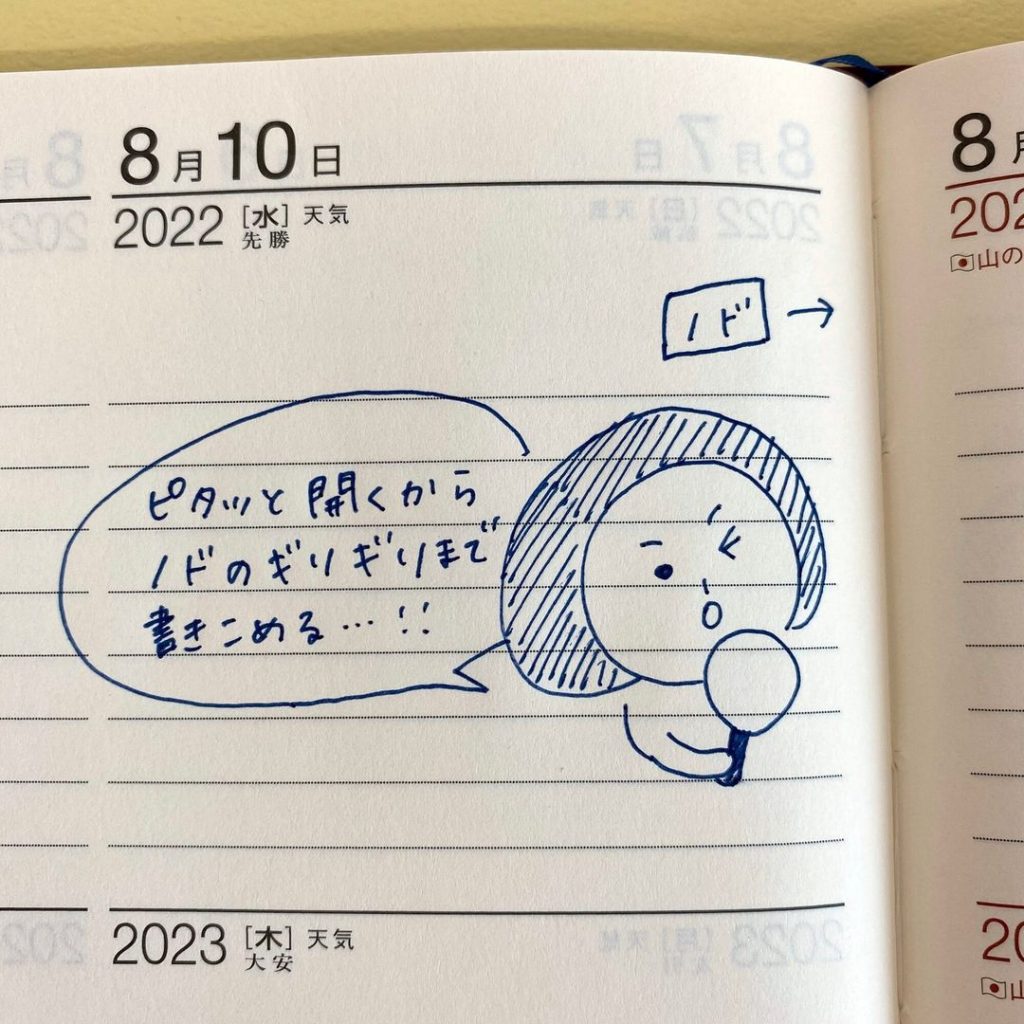 8月10日
2022 [水] 天気
先勝
ノド →
ピタッと開くから
ノドのギリギリまで
書きこめる…!!
2023 [木] 天気
大安
8月
202
山の
20
山